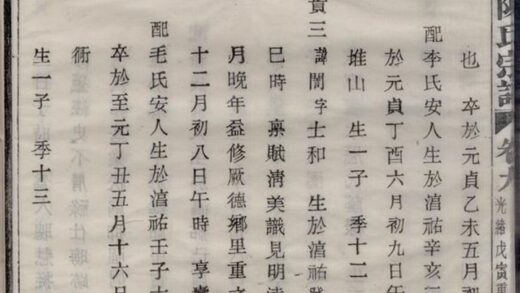 陳氏宗譜 卷九 光緒戊寅重
也 卒於元貞乙未五月初
配李氏安人生於淯祐辛亥
於元貞丁酉六月初九日午
堆山 生一子 季十二
貢三 諱闓字士和 生於淯祐
巳時 禀賦淸美識見明
月晚年益修厥德鄕里重之
十二月初八日午時 享
配毛氏安人生於淯祐壬子
卒於至元丁丑五月十六日
衕
生一子 季十三